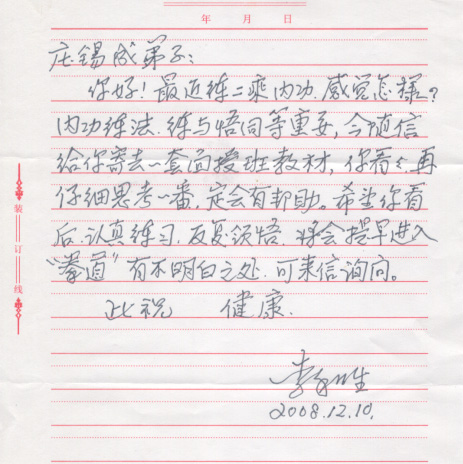 年 月 日
庄锡成弟子：
你好！最近练二乘内功，感觉怎样？
内功练法，练与悟同等重要，今随信
给你寄去一套面授班教材，你看了，再
仔细思考一番，定会有帮助。希望你看
后，认真练习，反复领悟，将会提早进入
“拳道”有不明白之处，可来信询问。
此祝 健康.
2008.12.10.
装
订
线